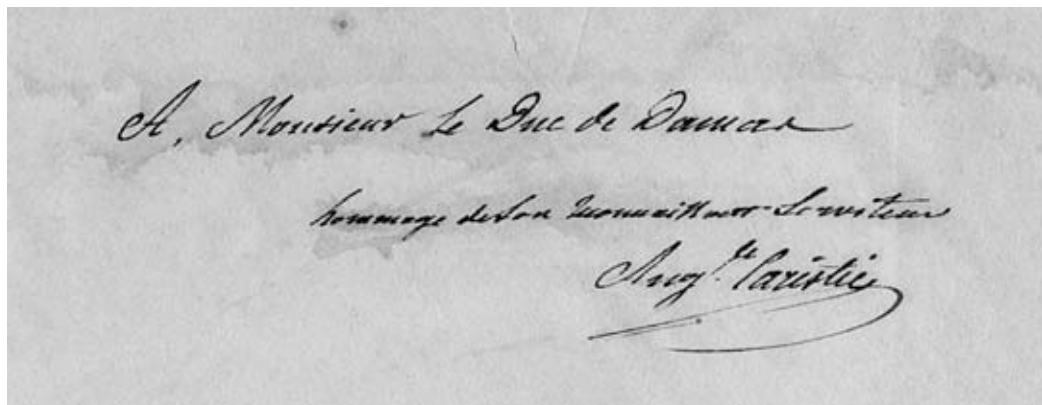 A, Monsieur Le Duc de Damas
hommage de son reconnaissant Serviteur
Aug.te Caristie